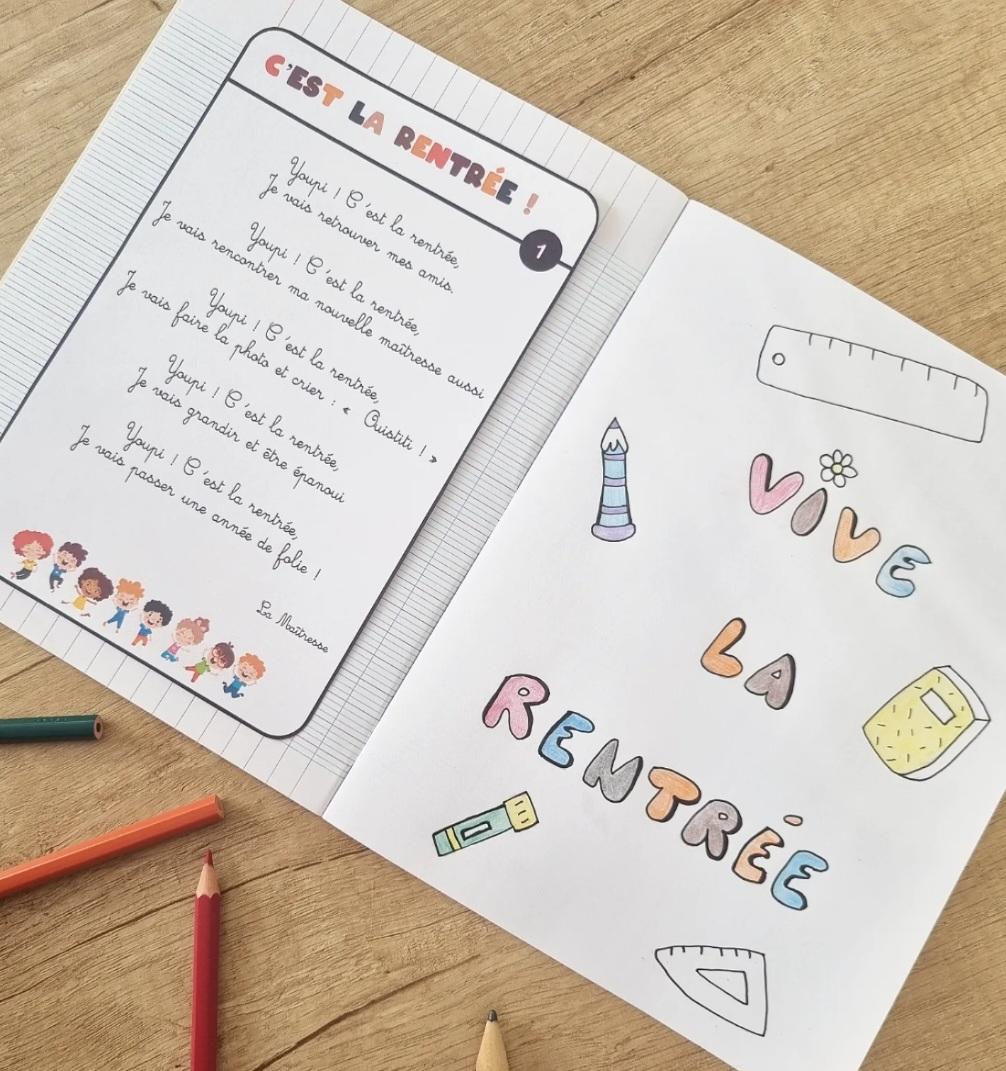 C'EST LA RENTRÉE !
1
Youpi ! C'est la rentrée,
Je vais retrouver mes amis.
Youpi ! C'est la rentrée,
Je vais rencontrer ma nouvelle maîtresse aussi
Youpi ! C'est la rentrée,
Je vais faire la photo et crier : « Ouistiti ! »
Youpi ! C'est la rentrée,
Je vais grandir et être épanoui
Youpi ! C'est la rentrée,
Je vais passer une année de folie !
La Maîtresse
VIVE
LA
RENTRÉE